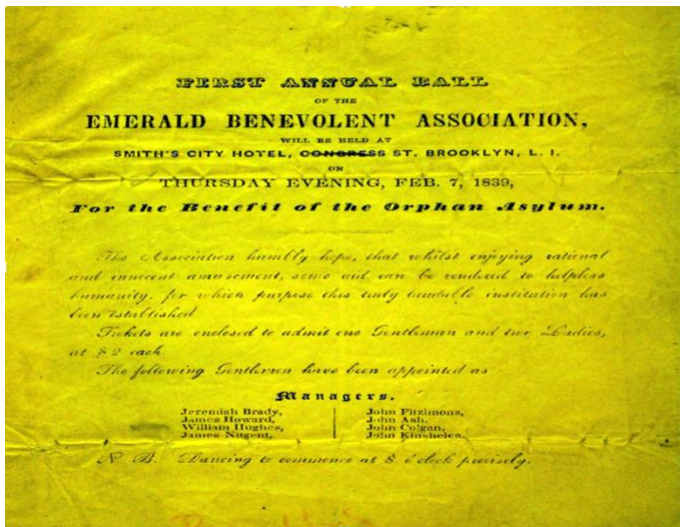 FIRST ANNUAL BALL
OF THE
EMERALD BENEVOLENT ASSOCIATION,
WILL BE HELD AT
SMITH'S CITY HOTEL, CONGRESS ST. BROOKLYN, L. I.
ON
THURSDAY EVENING, FEB. 7, 1839,
For the Benefit of the Orphan Asylum.
The Association humbly hope, that whilst enjoying rational
and innocent amusement, some aid can be rendered to helpless
humanity, for which purpose this truly laudable institution has
been established
Tickets are enclosed to admit one Gentleman and two Ladies,
at $2 each
The following Gentlemen have been appointed as
Managers.
Jeremiah Brady,
James Howard,
William Hughes,
James Nugent,
John Fitzimons,
John Ash,
John Colgan,
John Kinshelea,
N B. Dancing to commence at 8 o'clock precisely.